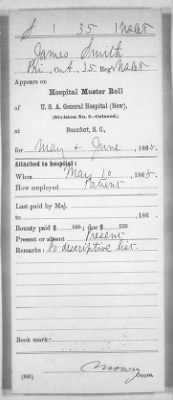 S 1 35
James Smith
Pvt, 35 Reg't
Appears on
Hospital Muster Roll
U. S. A. General Hospital (New),
(Division No. 2—Colored,)
at
Beaufort, S. C.,
for May & June, 1865.
Attached to hospital:
When May 10, 1865.
How employed Patient
Last paid by Maj.
to , 186 .
Bounty paid $ 100; due $ 100
Present or absent Present
Remarks: No descriptive list.
Book mark:
(343)